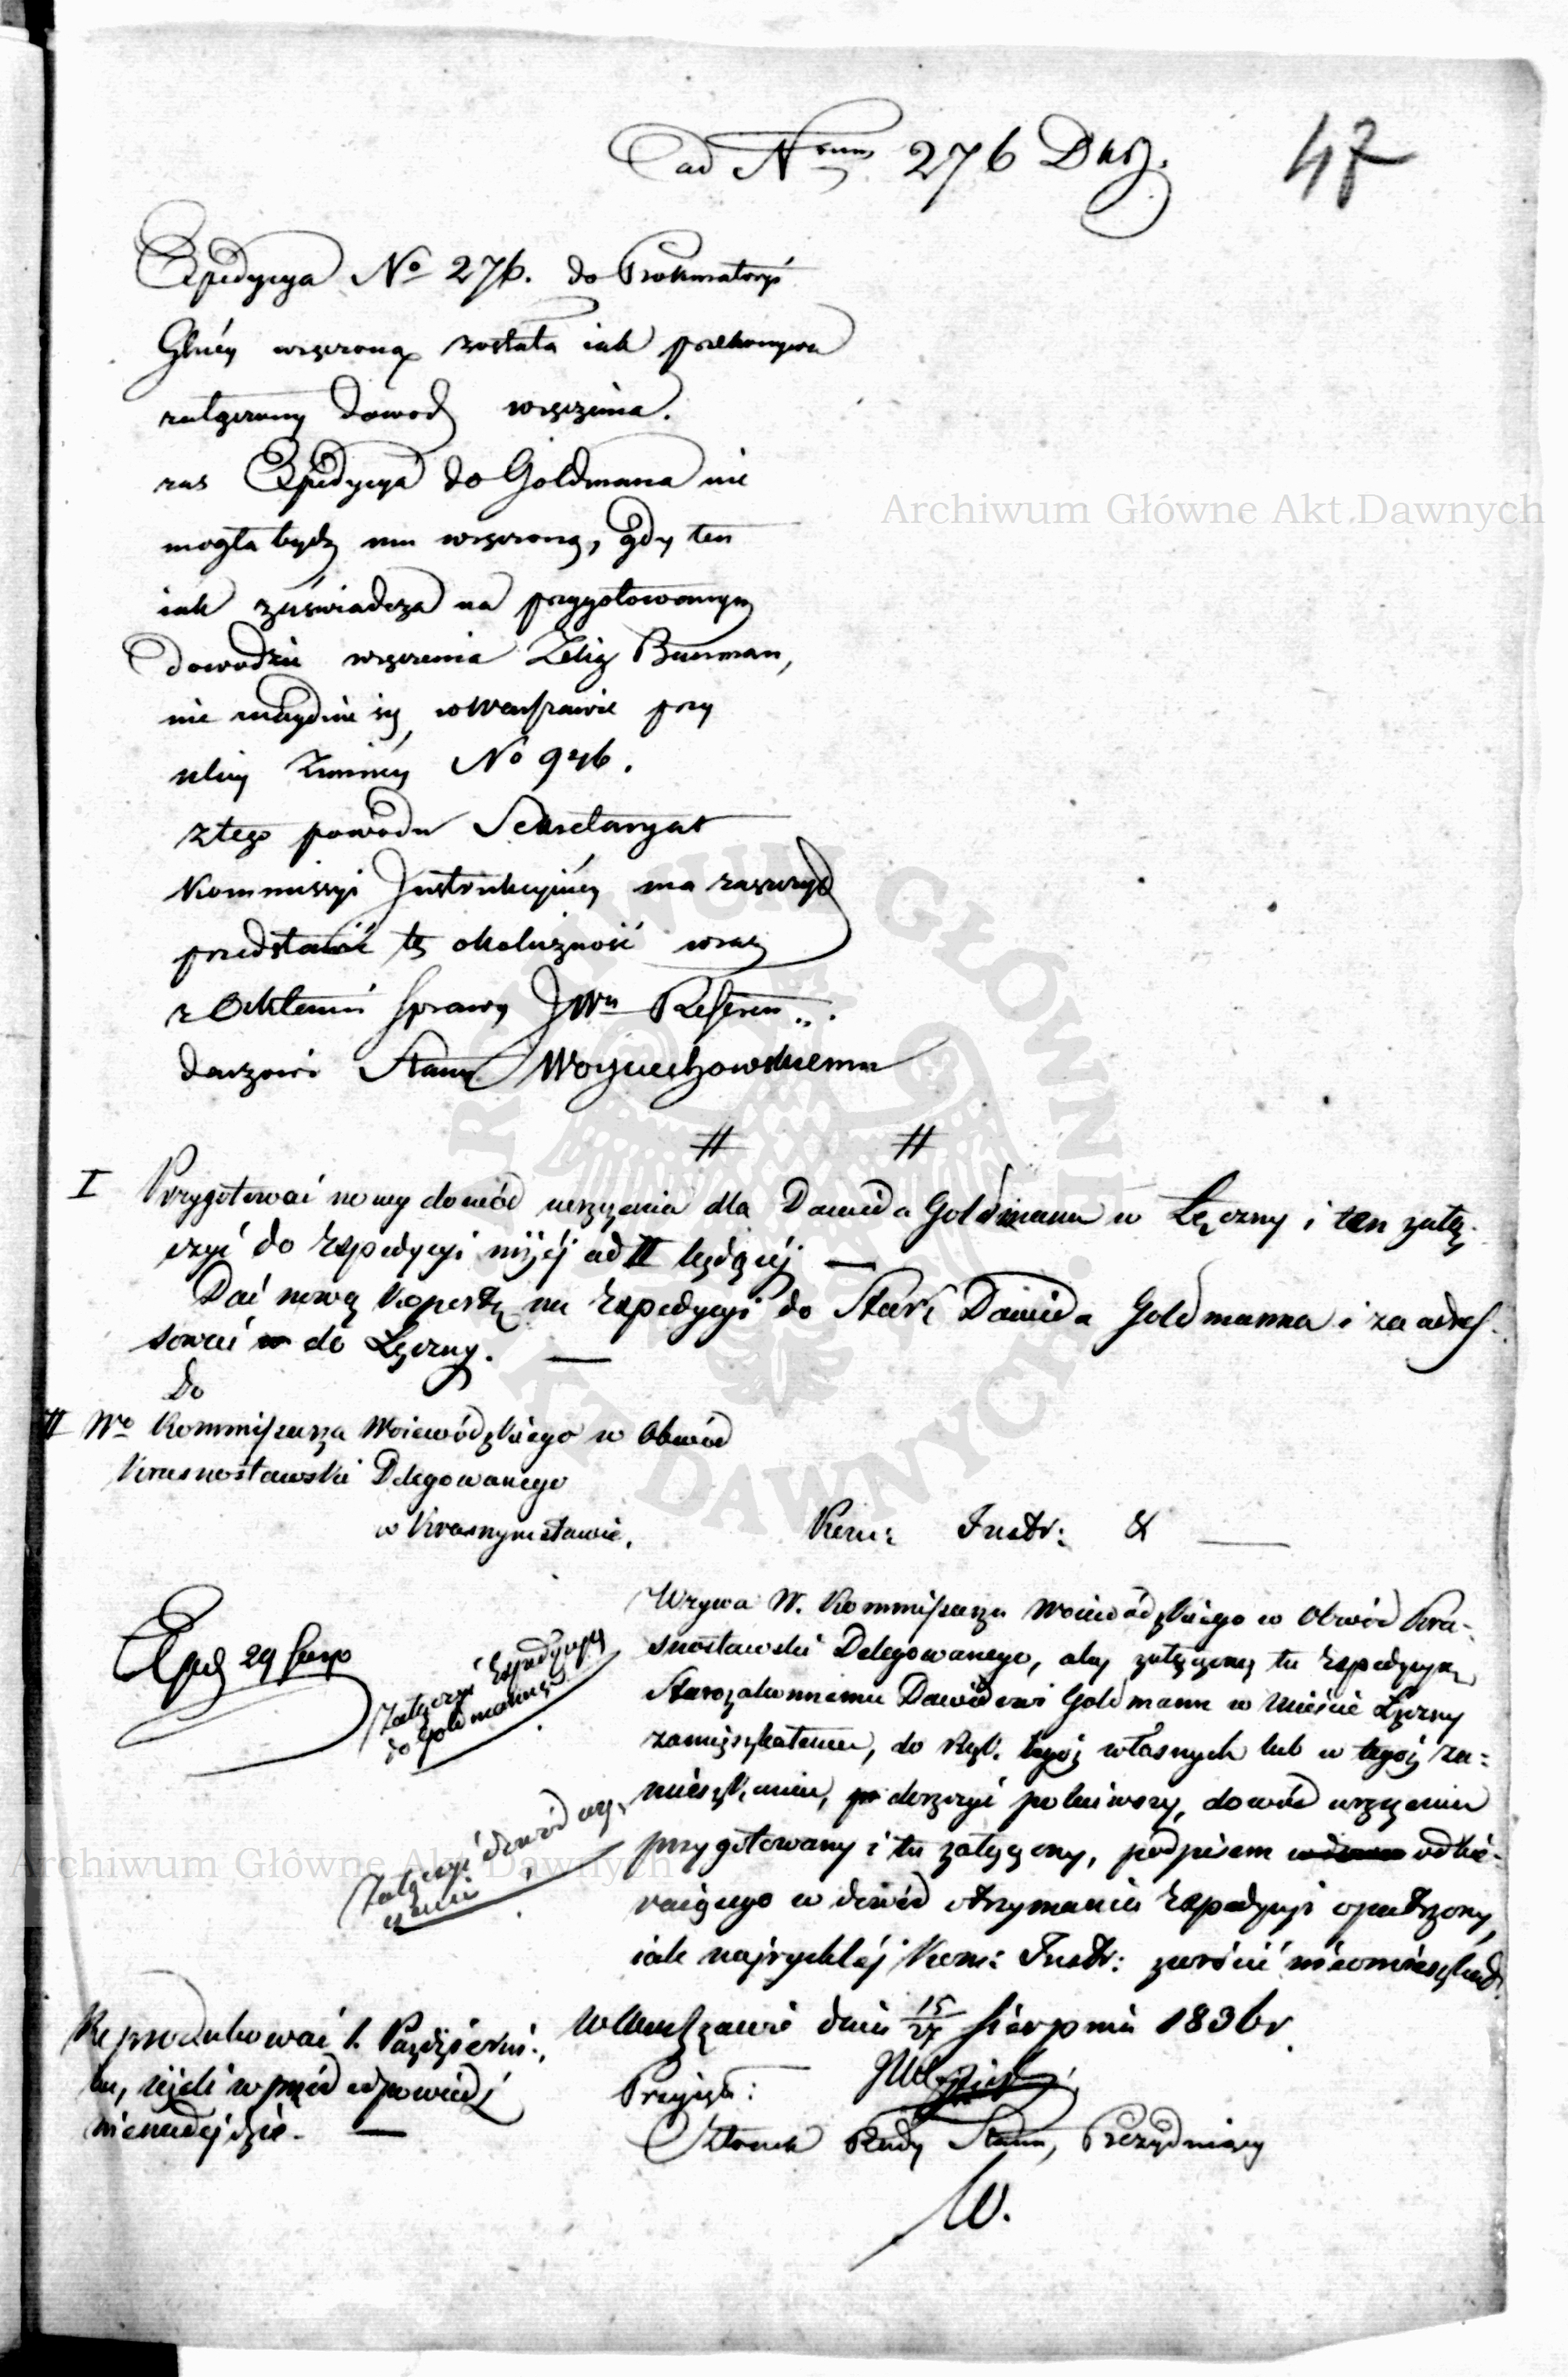 ad Nrum 276 Dz.
47
Expedycya No 276. do Prokuratoryi
Głnéy wręczoną została iak przekonywa
załączony dowod wręczenia.
zas Expedycya do Goldmana nie
mogła bydź mu wręczoną, gdy ten
iak zaświadcza na przygotowanym
dowodzie wręczenia Zelig Burman,
nie znayduie się, w Warszawie przy
ulicy Zimnéy No 946.
z tego powodu Sekretaryat
Kommissyi Instrukcyinéy ma zaszczyt
przedstawić tę okoliczność wraz
z Aktami sprawy JWu Referen
darzowi Stanu Woyciechowskiemu
# #
I Przygotować nowy dowód wręczenia dla Dawida Goldmann w Łęczny i ten załą-
czyć do Expedycyi niżéj ad II będącéj —
Dać nową kopertę na Expedycyi do Stark Dawida Goldmanna i zaadres-
sować do Łęczny. —
Do
II Wo Kommissarza Woiewódzkiego w Obwód
Krasnostawski Delegowanego
w Krasnymstawie.
Kom: Instr: & —
Wzywa W. Kommissarza Woiewódzkiego w Obwód Kra-
snostawski Delegowanego, aby załączoną tu Expedycyą
Starozakonnemu Dawidowi Goldmann w Mieście Łęczny
zamieszkałemu, do rąk tegoż własnych lub w tegoż za-
mieszkaniu, doręczyć polecił, dowód wręczenia
przygotowany i tu załączony, podpisem odbie-
raiącego w dowód otrzymania Expedycyi opatrzony,
iak nayrychléj Kom: Instr: zwrócić nieomieszkał.
Exped 29 Sierp
Załączyć Expedycyą
do Goldmanna
Załączyć dowód wrę-
czenia
w Warszawie dnia 15/27 Sierpnia 1836 r.
Reprodukować 1. Październi-
ka, jeżeli wprzód odpowiedź
nienadejdzie. —
Przyjął:
Członek Rady Stanu, Prezyduiący
W.